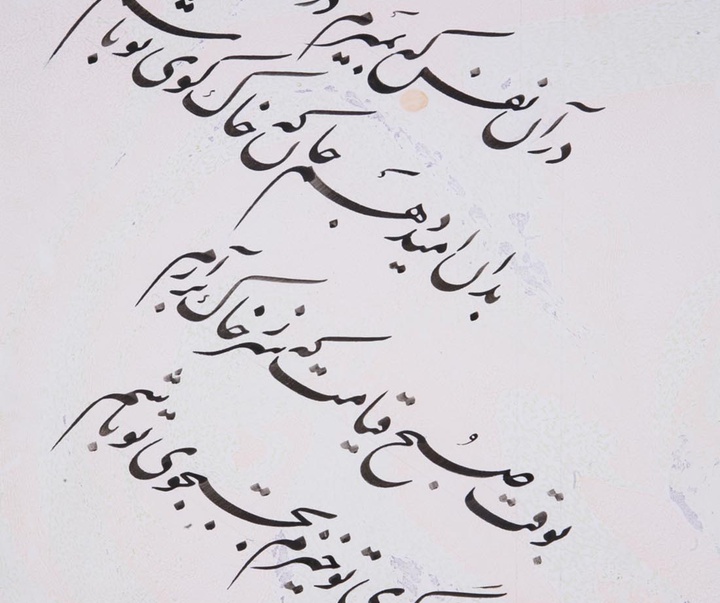 در آن نفس که بمیرم در
بدان امید دهم جان که خاک کوی تو باشم
بوقت صبح قیامت که سر ز خاک برآرم
گوی تو خیزم بجستجوی تو باشم